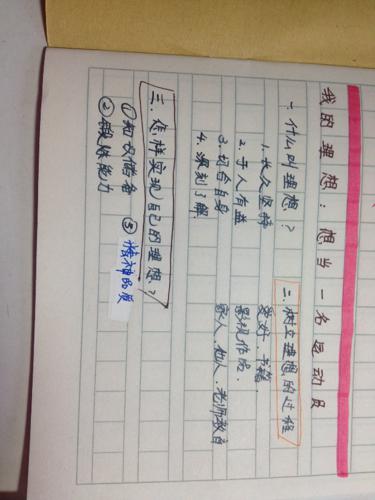 我的理想：想当一名运动员
一.什么叫理想？
1.长久坚持
2.于人有益
3.切合自身
4.深刻了解
二.树立理想的过程
爱好.书籍.
影视作品.
家人.他人.老师教育
三.怎样实现自己的理想？
①知识储备 ③精神品质
②锻炼能力